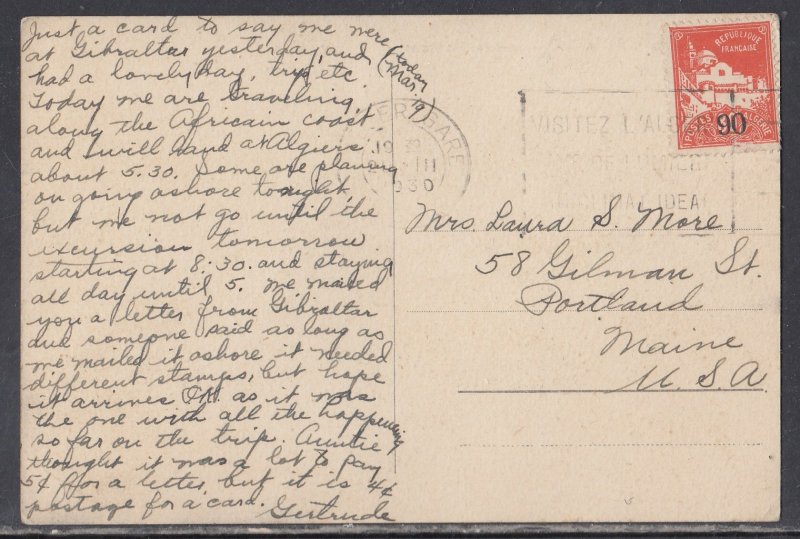 Just a card to say we were
at Gibraltar yesterday, and
had a lovely day, trip, etc.
(today
Mar. 19)
Today we are traveling
along the Africain coast
and will land at Algiers
about 5.30. Some are planing
on going ashore tonight,
but we not go until the
excursion tomorrow
starting at 8:30. and staying
all day until 5. We mailed
you a letter from Gibraltar
and someone said as long as
we mailed it ashore it needed
different stamps, but hope
it arrives O.K. as it was
the one with all the happening
so far on the trip. Auntie
thought it was a lot to pay
5¢ for a letter, but it is 4¢
postage for a card.
Gertrude
REPUBLIQUE
FRANCAISE
90
POSTES ALGERIE
GARE
19
III
1930
VISITEZ L'ALG
IDEA
Mrs. Laura S. More
58 Gilman St.
Portland
Maine
U. S. A